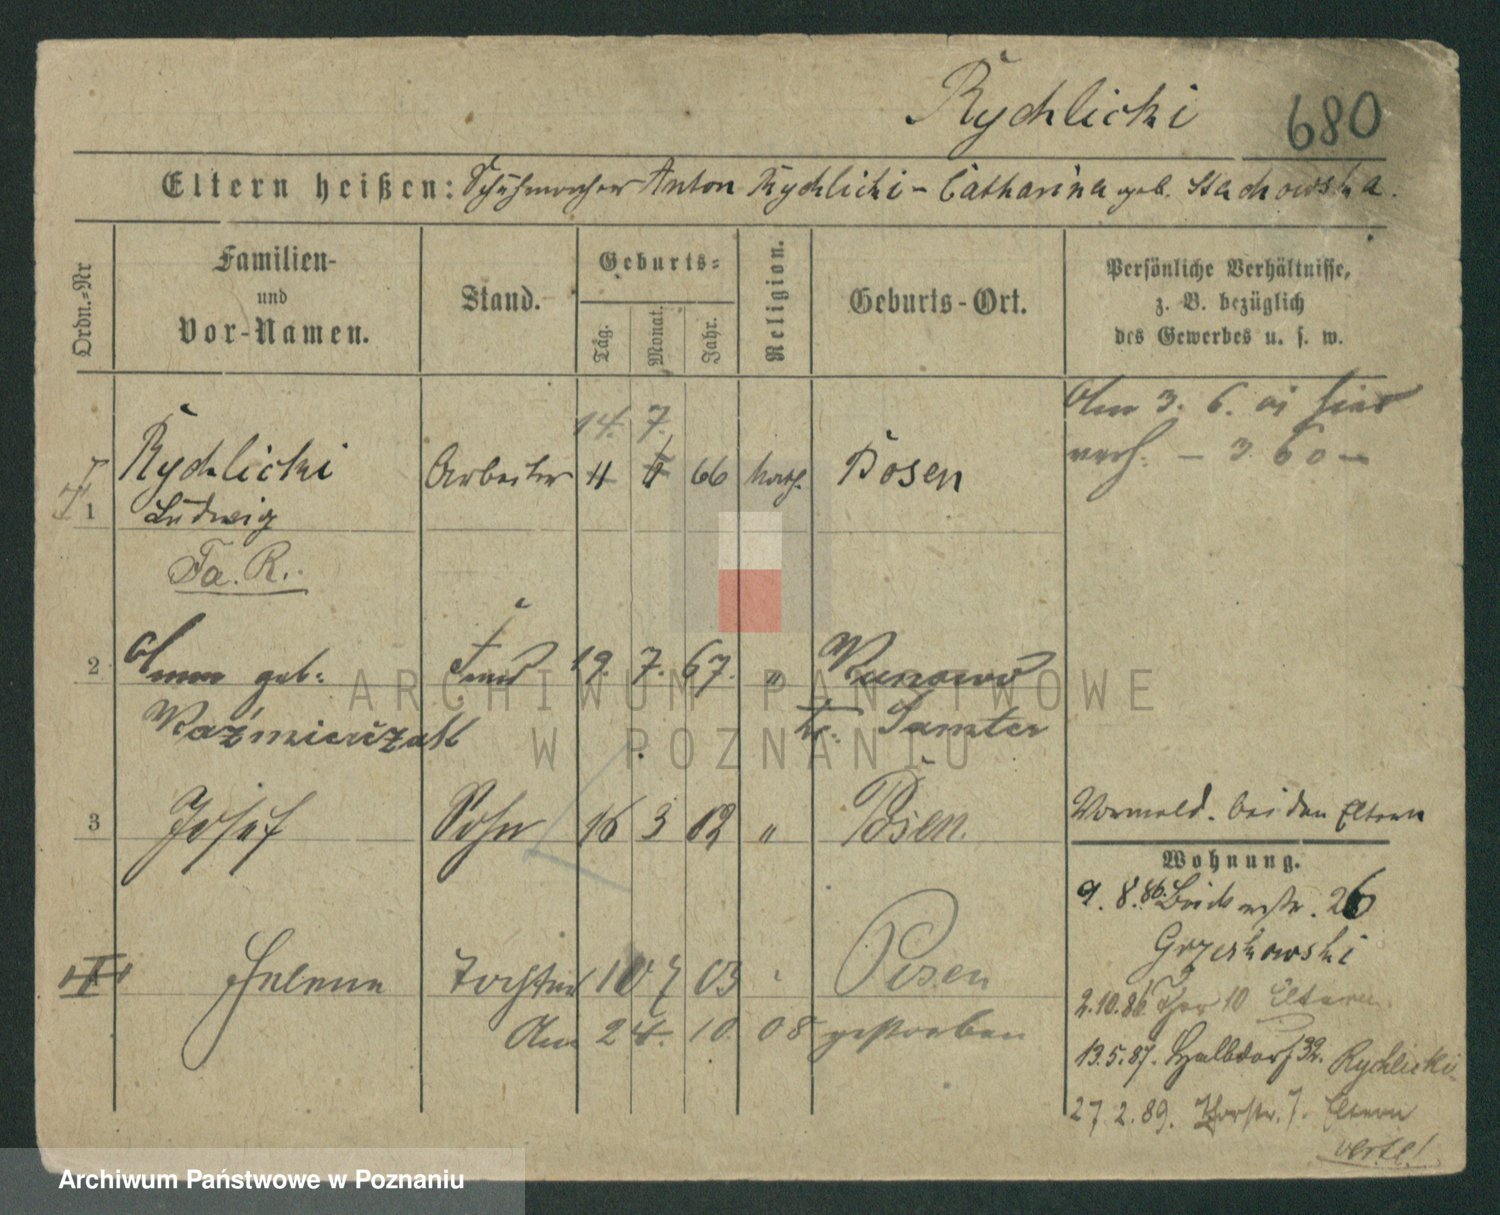 Rychlicki 680
Eltern heißen: Schuhmacher Anton Rychlicki - Catharina geb. Stachowska.
Ordn.=Nr
Familien-
und
Vor-Namen.
Stand.
Geburts=
Tag.
Monat.
Jahr.
Religion.
Geburts-Ort.
Persönliche Verhältnisse,
z. B. bezüglich
des Gewerbes u. s. w.
14. 7.
Am 3. 6. 01 hier
verh. - 3. 60 -
Rychlicki Arbeiter 66 kath. Posen
1 Ludwig
Fa. R.
2 geb. Frau 19. 7. 67. " Runowo
Kaźmierczak Kr. Samter
3 Josef Sohn 16 3 02 " Posen.
Vormeld. bei den Eltern
Wohnung.
9. 8. 86. 26
Grzeskowski
Helene Tochter 10 7 03 Posen
2.10.86 10 Eltern
Am 24. 10. 08 gestorben
13.5.87. Halbdorf 32. Rychlicki
27.2.89. Thorstr. 7. Eltern
verte!
ARCHIWUM PAŃSTWOWE
W POZNANIU
Archiwum Państwowe w Poznaniu